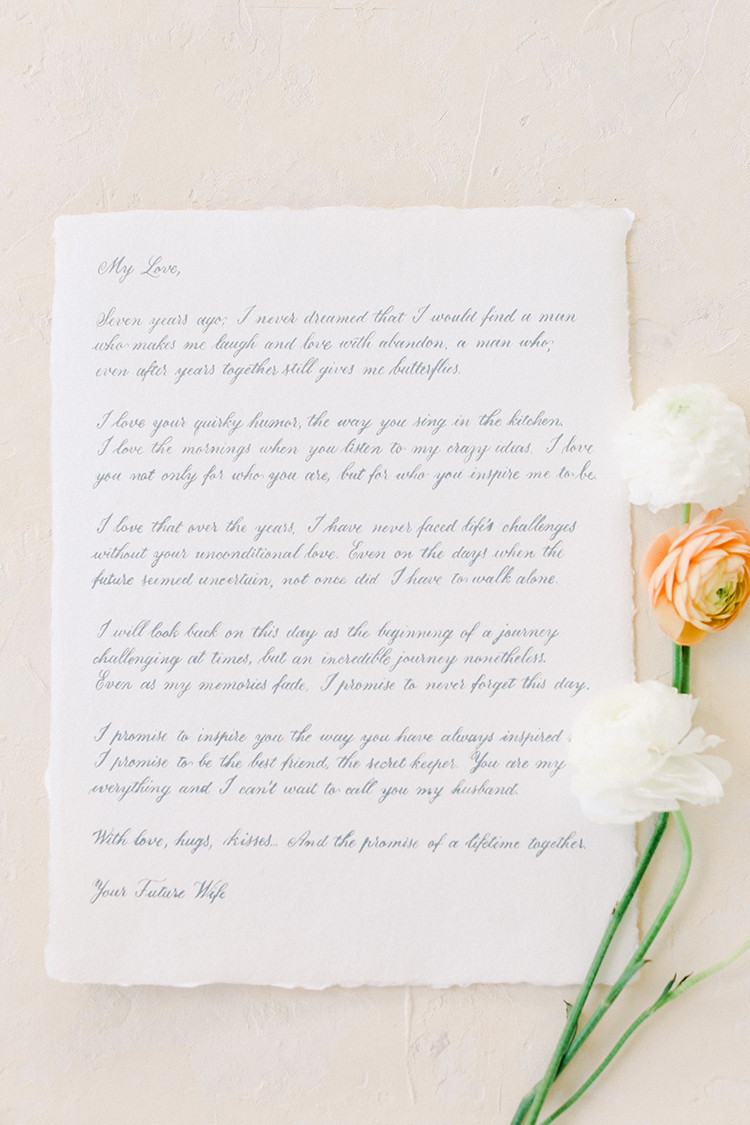 My Love,
Seven years ago, I never dreamed that I would find a man
who makes me laugh and love with abandon, a man who,
even after years together still gives me butterflies.
I love your quirky humor, the way you sing in the kitchen.
I love the mornings when you listen to my crazy ideas. I love
you not only for who you are, but for who you inspire me to be.
I love that over the years, I have never faced life's challenges
without your unconditional love. Even on the days when the
future seemed uncertain, not once did I have to walk alone.
I will look back on this day as the beginning of a journey
challenging at times, but an incredible journey nonetheless.
Even as my memories fade, I promise to never forget this day.
I promise to inspire you the way you have always inspired
I promise to be the best friend, the secret keeper. You are my
everything and I can't wait to call you my husband.
With love, hugs, kisses... And the promise of a lifetime together.
Your Future Wife